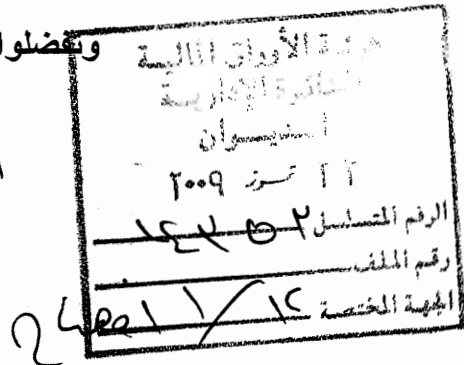 وتفضلوا
هيئة الأوراق المالية
الدائرة الإدارية
الديوان
٢٢ تموز ٢٠٠٩
الرقم المتسلسل
رقم الملف
الجهة المختصة ١٢/١